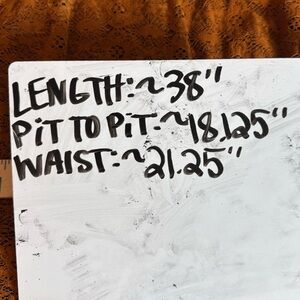 LENGTH:~38"
PiT TO PiT:~18.125"
WAIST:~21.25"